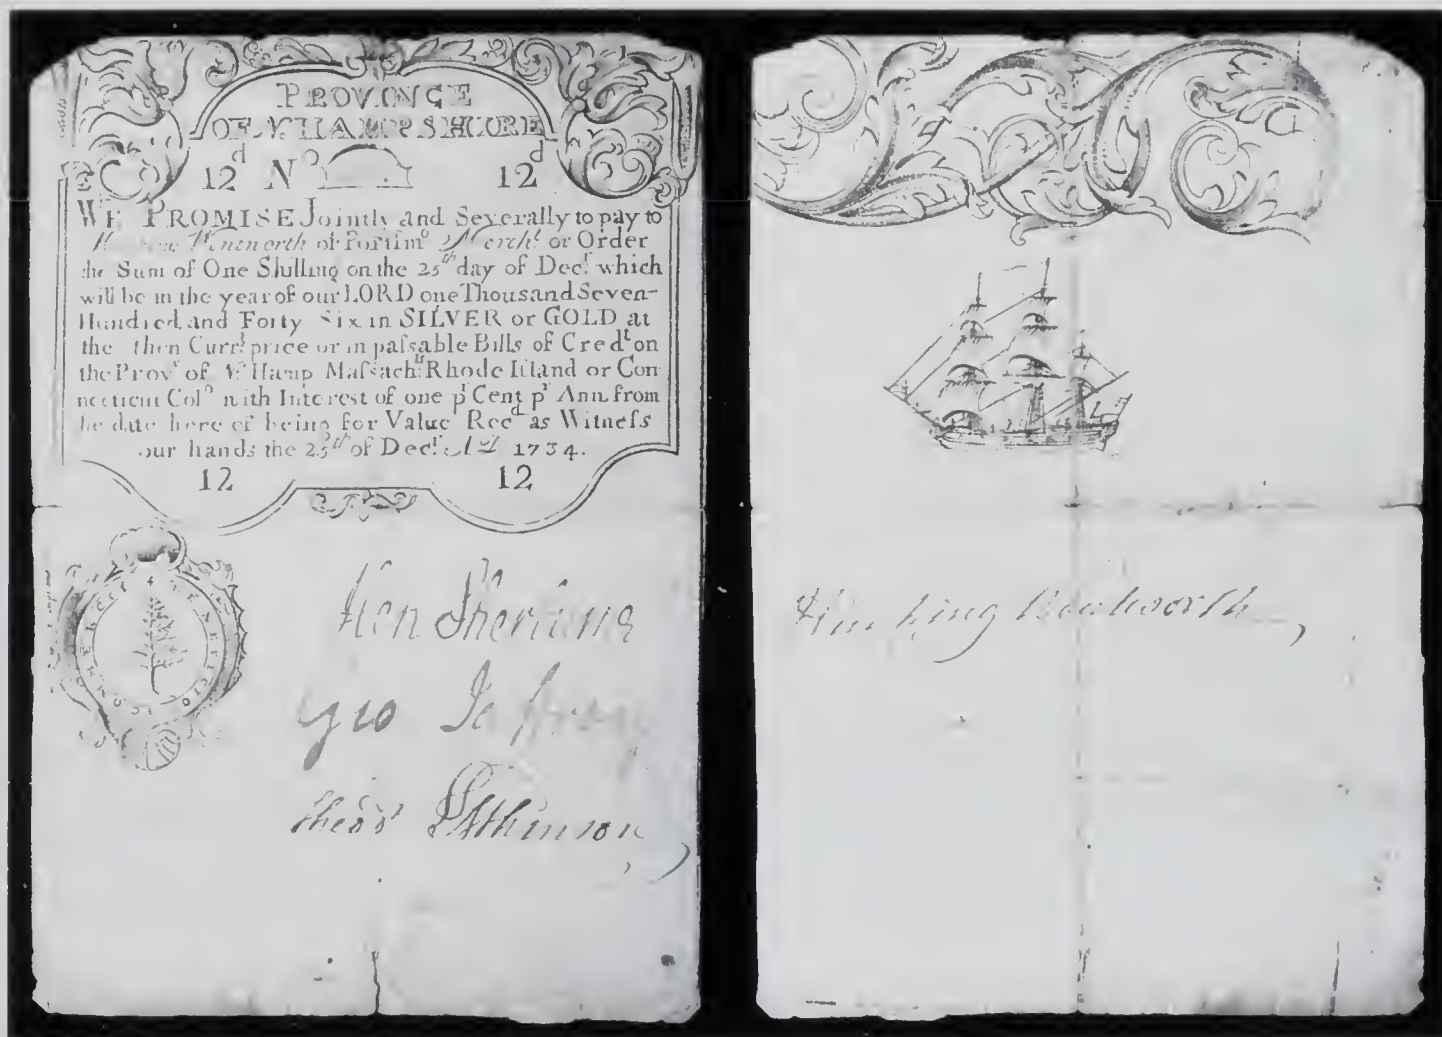 PROVINCE
OF N HAMPSHIRE
12d No 12d
WE PROMISE Jointly and Severally to pay to
Wentworth of Portsmo Mercht or Order
the Sum of One Shilling on the 25th day of Decr. which
will be in the year of our LORD one Thousand Seven-
Hundred and Forty Six in SILVER or GOLD at
the then Currt price or in paſsable Bills of Credt on
the Prov of N Hamp Maſsachts Rhode Iſland or Con
necticut Colo with Intereſt of one pr Cent pr Ann from
he date here of being for Value Recd as Witneſs
our hands the 25th of Decr. AD 1734.
12 12
COMMERCII BENEFITIO
Hen Sherburne
Geo Jaffrey
Theod Atkinson
Hunking Wentworth